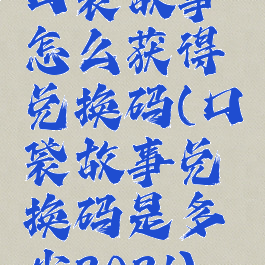 口袋故事
怎么获得
兑换码(口
袋故事兑
换码是多
少2021)